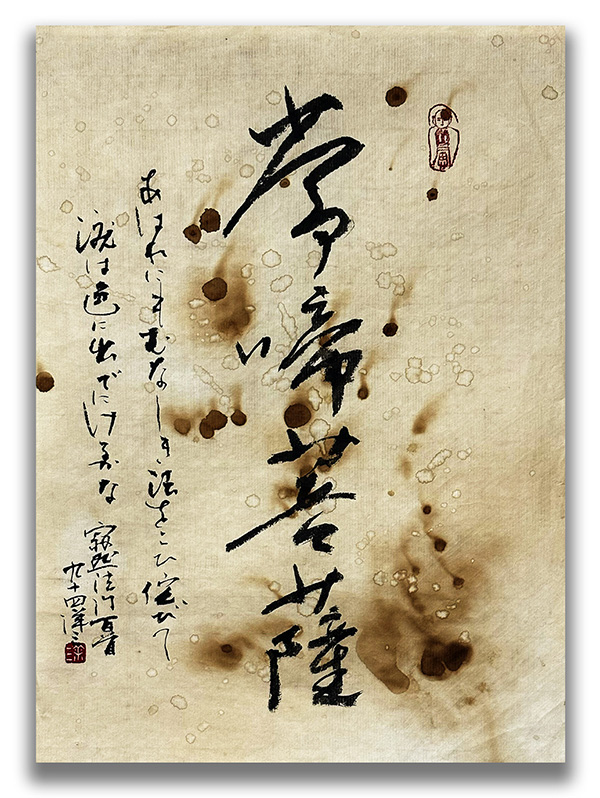 常啼菩薩
あはれにもむなしき法をこひ侘びて
涙は色に出でにけるかな
寂然法門百首
九十四